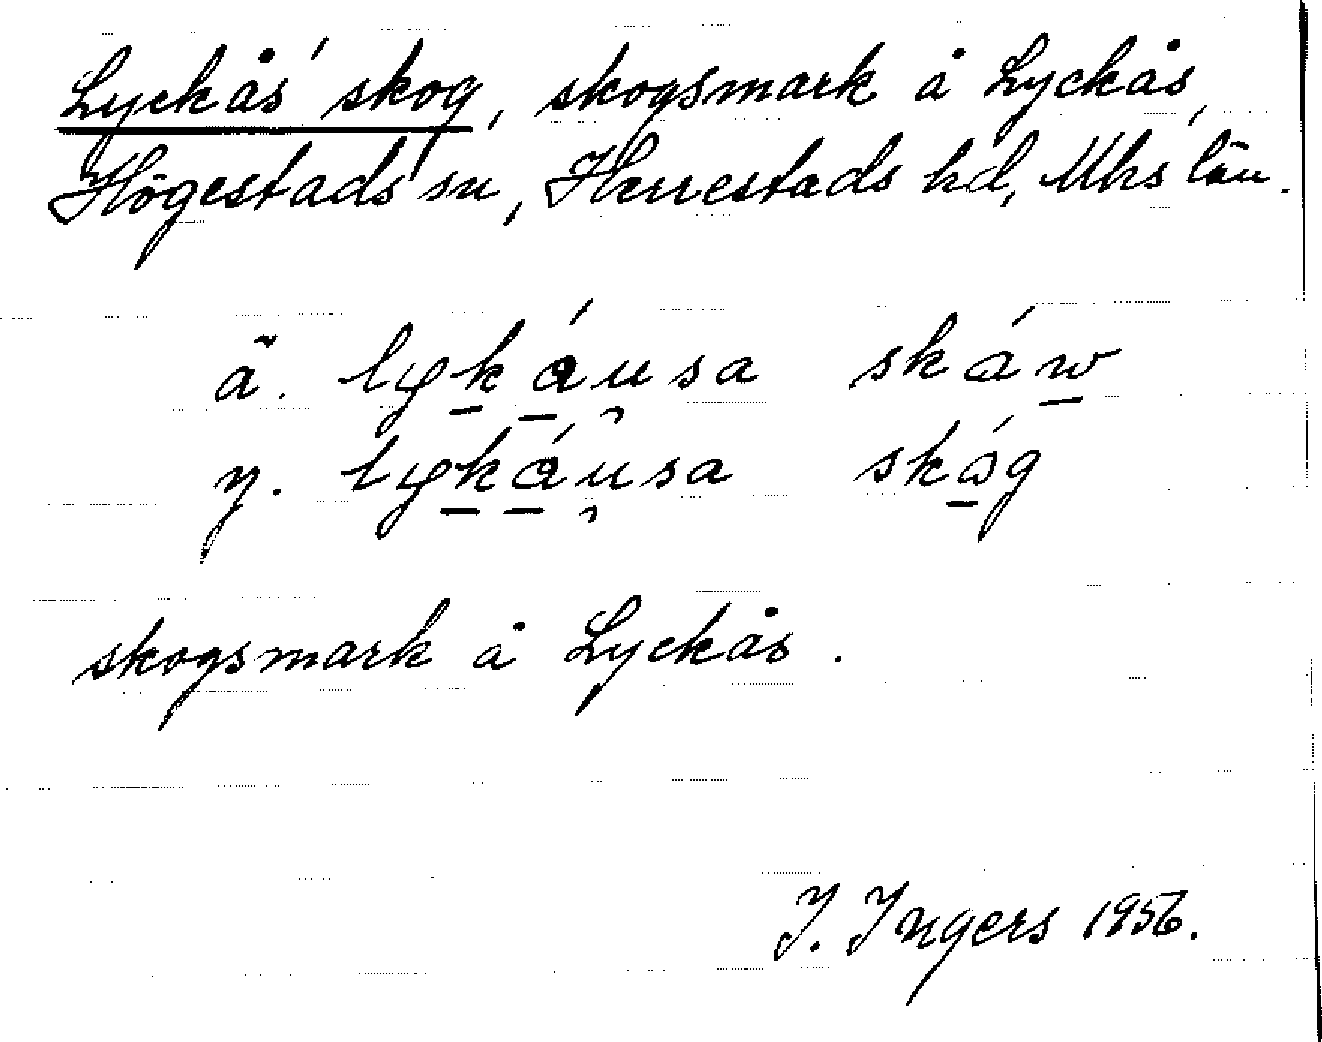 Lyckås' skog, skogsmark å Lyckås,
Högestads sn, Herrestads hd, Mhs län.
ä. lykáusa skáw
y. lykáusa skåg
skogsmark å Lyckås.
I. Ingers 1956.